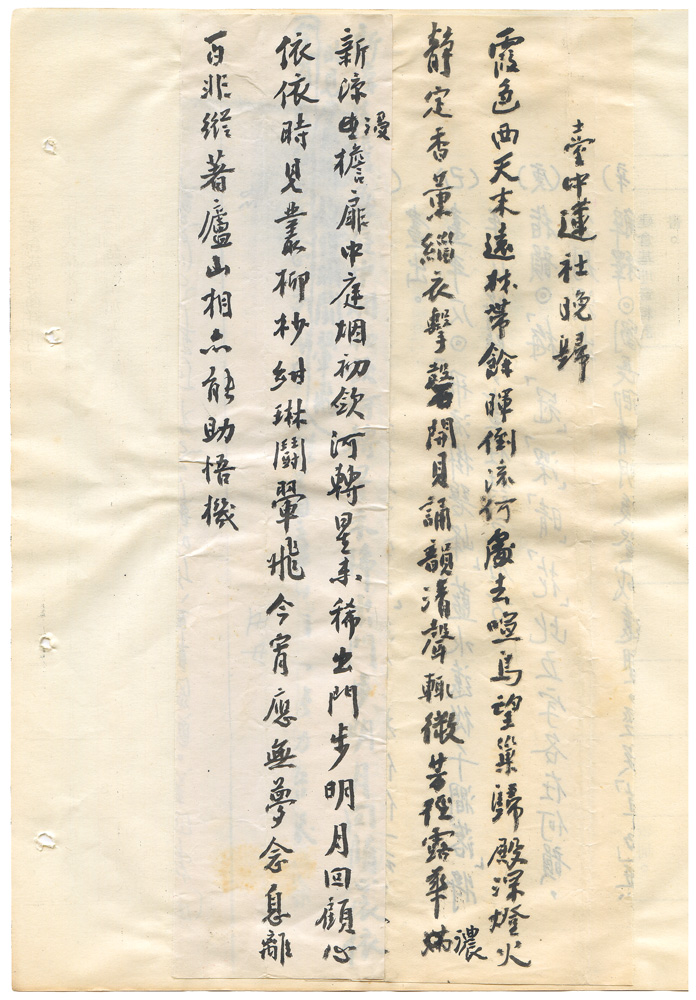 臺中蓮社晚歸
霞色西天末遠林帶餘暉倒流何處去喧鳥望巢歸殿深燈火
靜定香薰緇衣擊磬開貝誦韻清聲輒微芳徑露華滿濃
新涼生浸檐扉中庭烟初斂河轉星未稀出門步明月回顧心
依依時見叢柳杪紺琳鬪翬飛今宵應無夢念息離
百非縱著廬山相亦能助悟機